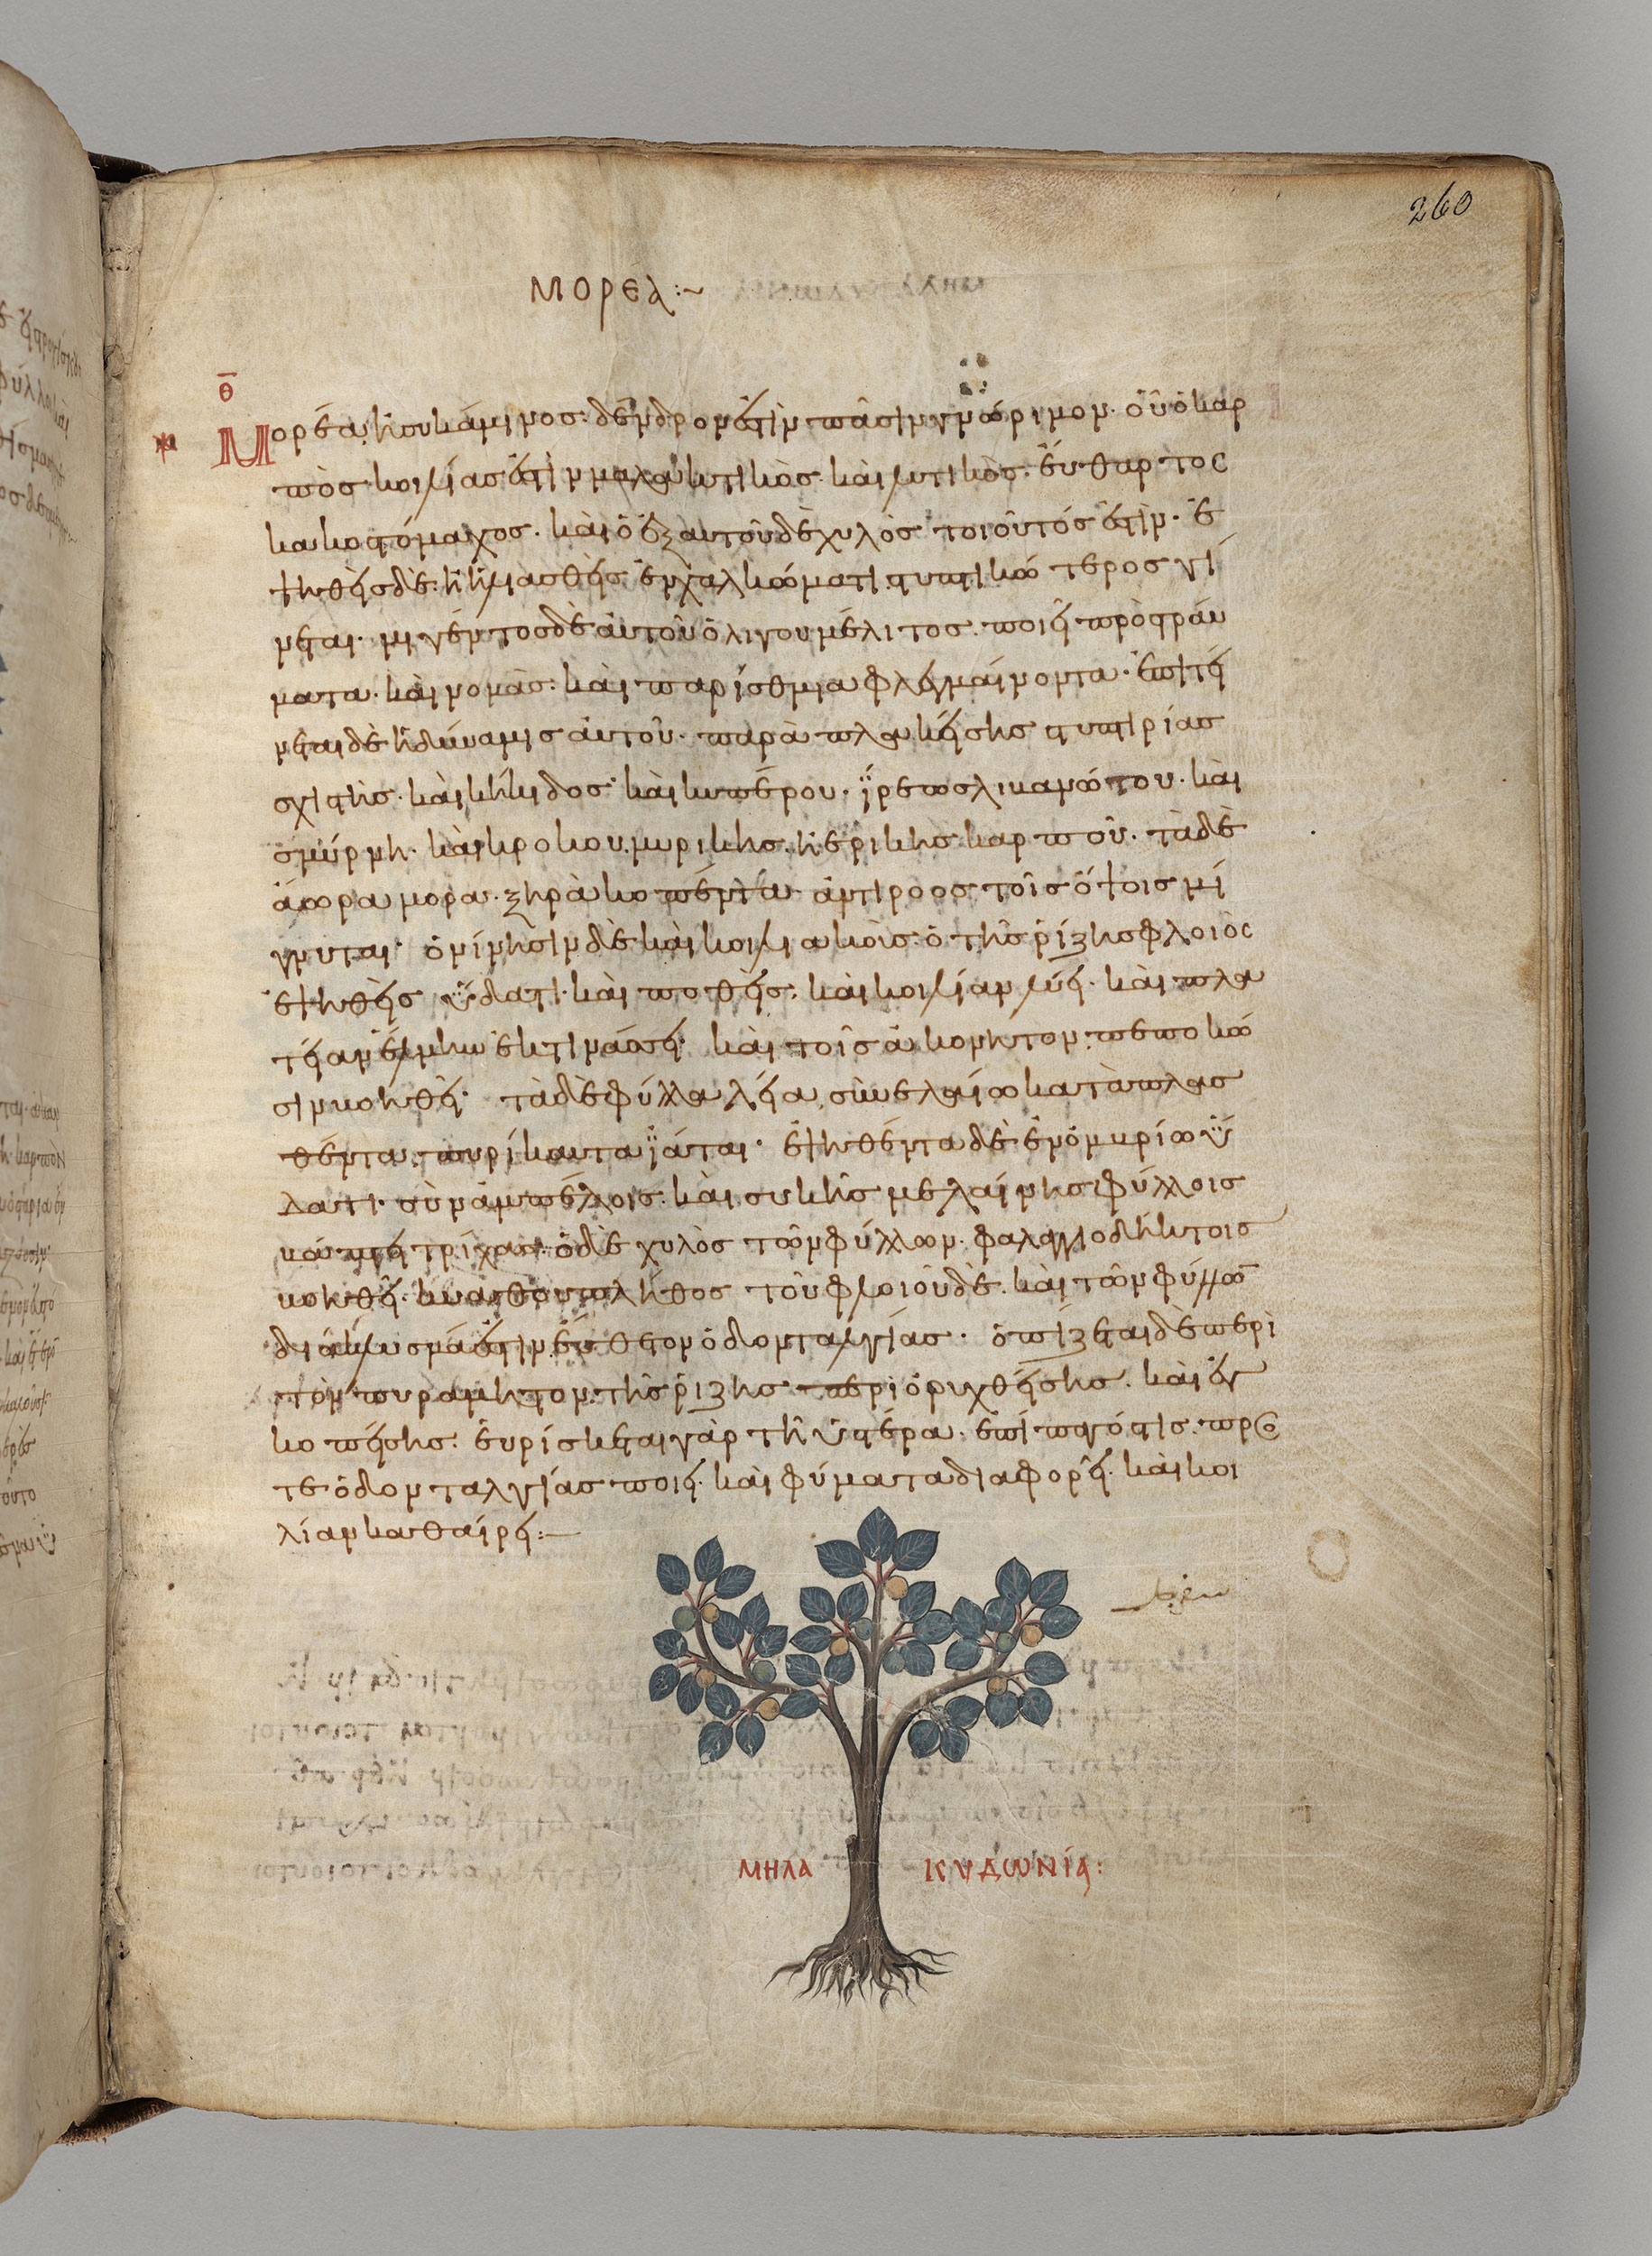 260
ΜΟΡΕΑ:~
θ
Μορέα, ἢ συκάμινος· δένδρον ἐστὶν πᾶσιν γνώριμον· οὗ ὁ καρ
πὸς κοιλίας ἐστὶν μαλακτικὸς καὶ λυτικὸς· εὔφθαρτος
κακοστόμαχος· καὶ ὁ ἐξ αὐτοῦ δὲ χυλὸς τοιοῦτός ἐστιν· ἑ
ψηθεὶς δὲ· ἢ ἡλιασθεὶς ἐν χαλκώματι στυπτικώτερος γί
νεται· μιγέντος δὲ αὐτοῦ ὀλίγου μέλιτος· ποιεῖ πρὸς ῥεύ
ματα· καὶ νομὰς· καὶ παρίσθμια φλεγμαίνοντα· ἐπιτεί
νεται δὲ ἡ δύναμις αὐτοῦ· παραπλακείσης στυπτηρίας
σχιστῆς· καὶ κηκίδος καὶ κυπέρου·
σμύρνη· καὶ κρόκου μυρίκης· ἢ ἐρίκης καρποῦ· τὰ δὲ
ἄωρα μόρα· ξηρὰ κοπέντα ἀντὶ ῥοὸς τοῖς ὄψοις μί
γνυται· ὀνίνησιν δὲ καὶ κοιλιακοῖς· ὁ τῆς ῥίζης φλοιὸς
ἑψηθεὶς ὕδατι· καὶ ποθεὶς· καὶ κοιλίαν λύει· καὶ πλα
τεῖαν ἕλμιν ἐκτινάσσει· καὶ τοῖς ἀκόνιτον πεπωκό
σιν βοηθεῖ· τὰ δὲ φύλλα λεῖα σὺν ἐλαίω καταπλασ
θέντα πυρίκαυτα ἰᾶται· ἑψηθέντα δὲ ἐν ὀμβρίω ὕ
δατι· σὺν ἀμπέλοις· καὶ συκῆς μελαίνης φύλλοις
βάπτει τρίχας· ὁ δὲ χυλὸς τῶν φύλλων· φαλαγγιοδήκτοις
βοηθεῖ· κυάθου πλῆθος τοῦ φλοιοῦ δὲ· καὶ τῶν φύλλω̄
διάκλυσμά ἐστιν εὔθετον ὀδονταλγίας· ὀπίζεται δὲ περὶ
τὸν πυραμητὸν τῆς ῥίζης περιορυχθείσης· καὶ ἐγ
κοπείσης· εὑρίσκεται γὰρ τῇ ὑστέρα· ἐπίπαγός τις· πρὸς
τε ὀδονταλγίας ποιεῖ· καὶ φύματα διαφορεῖ· καὶ κοι
λίαν καθαίρει:—
ΜΗΛΑ ΚΥΔΩΝΙΑ: